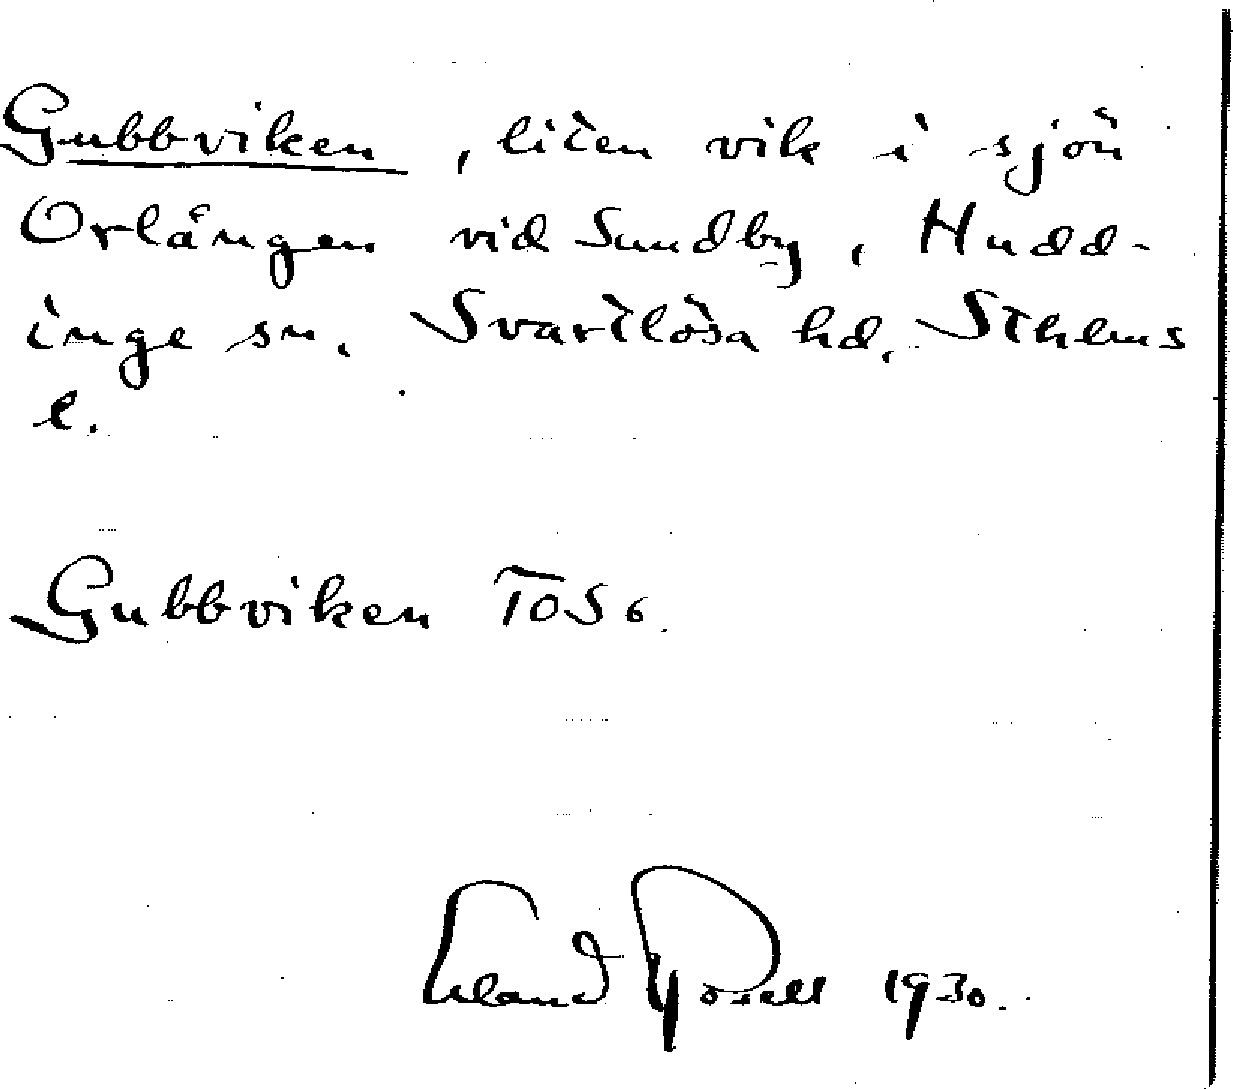 Gubbviken, liten vik i sjön
Orlången vid Sundby, Hudd-
inge sn. Svartlösa hd. Sthlms
l.
Gubbviken TOS 6.
Erland Rosell 1930.